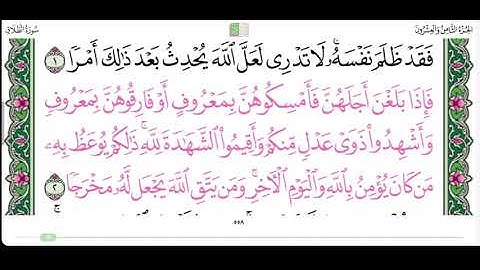 سُورَةُ الطَّلَاقِ
الجُزْءُ الثَّامِنُ وَالعِشْرُونَ
فَقَدْ ظَلَمَ نَفْسَهُۥۚ لَا تَدْرِى لَعَلَّ ٱللَّهَ يُحْدِثُ بَعْدَ ذَٰلِكَ أَمْرًا ١
فَإِذَا بَلَغْنَ أَجَلَهُنَّ فَأَمْسِكُوهُنَّ بِمَعْرُوفٍ أَوْ فَارِقُوهُنَّ بِمَعْرُوفٍ
وَأَشْهِدُوا۟ ذَوَىْ عَدْلٍ مِّنكُمْ وَأَقِيمُوا۟ ٱلشَّهَٰدَةَ لِلَّهِۚ ذَٰلِكُمْ يُوعَظُ بِهِۦ
مَن كَانَ يُؤْمِنُ بِٱللَّهِ وَٱلْيَوْمِ ٱلْءَاخِرِۚ وَمَن يَتَّقِ ٱللَّهَ يَجْعَل لَّهُۥ مَخْرَجًا ٢
٥٥٨